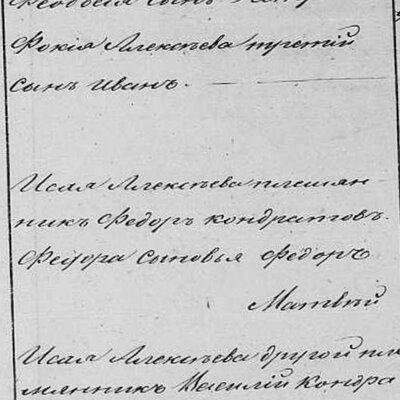 Ѳеодосія сынъ
Ѳокія Алексѣева третій
сынъ Иванъ.
Исая Алексѣева племян-
никъ Ѳедоръ Кондратовъ.
Ѳедора сыновья Ѳедоръ
Матвѣй
Исая Алексѣева другой пле
мянникъ Василій Кондра